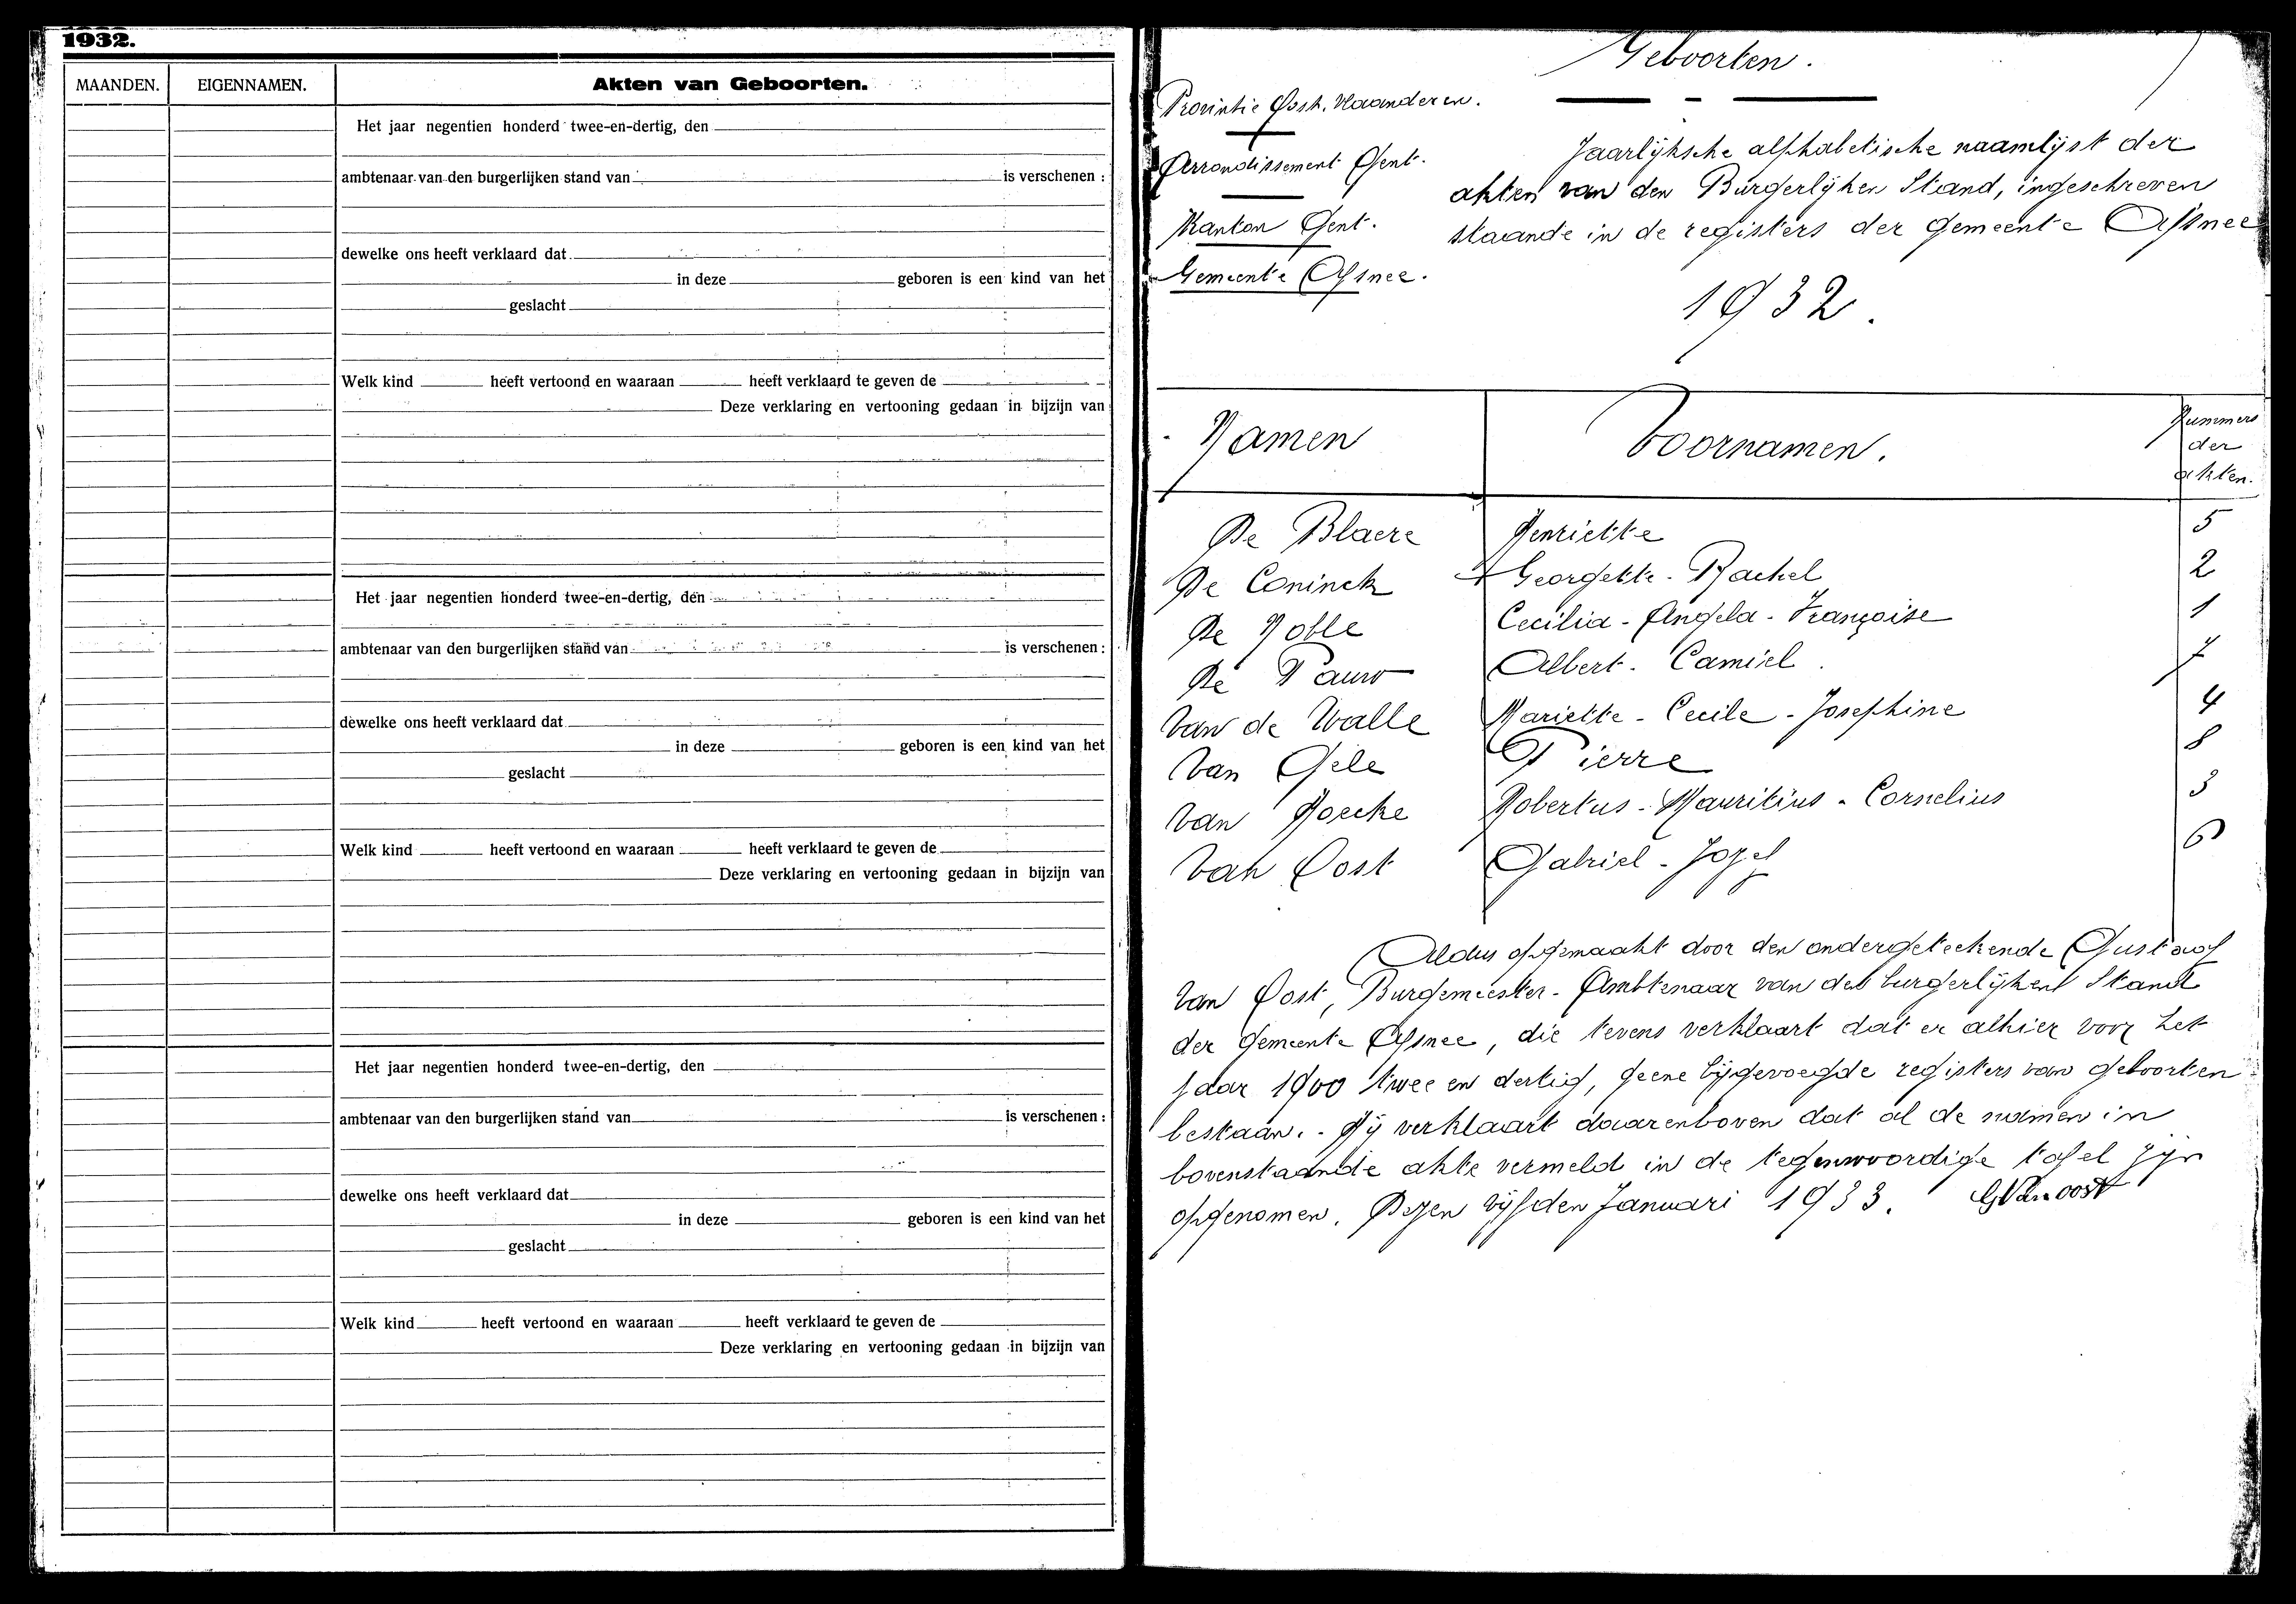 1932.
MAANDEN. EIGENNAMEN. Akten van Geboorten.
Het jaar negentien honderd twee-en-dertig, den
ambtenaar van den burgerlijken stand van is verschenen :
dewelke ons heeft verklaard dat
in deze geboren is een kind van het
geslacht
Welk kind heeft vertoond en waaraan heeft verklaard te geven de
Deze verklaring en vertooning gedaan in bijzijn van
Het jaar negentien honderd twee-en-dertig, den
ambtenaar van den burgerlijken stand van is verschenen :
dewelke ons heeft verklaard dat
in deze geboren is een kind van het
geslacht
Welk kind heeft vertoond en waaraan heeft verklaard te geven de
Deze verklaring en vertooning gedaan in bijzijn van
Het jaar negentien honderd twee-en-dertig, den
ambtenaar van den burgerlijken stand van is verschenen :
dewelke ons heeft verklaard dat
in deze geboren is een kind van het
geslacht
Welk kind heeft vertoond en waaraan heeft verklaard te geven de
Deze verklaring en vertooning gedaan in bijzijn van
Geboorten.
Provintie Oost. Vlaanderen.
Arrondissement Gent.
Kanton Gent.
Gemeente Afsnee.
Jaarlijksche alphabetische naamlijst der
akten van den Burgerlijken Stand, ingeschreven
staande in de registers der gemeente Afsnee
1932.
Namen Voornamen. Nummers der akten.
De Blaere Henriette 5
De Coninck Georgette - Rachel 2
De Nolle Cecilia - Angela - Françoise 1
De Pauw Albert - Camiel. 7
Van de Walle Mariette - Cecile - Josephine 4
Van Gele Pierre 8
Van Hoecke Robertus - Mauritius - Cornelius 3
Van Oost Gabriel - Jozef 6
Aldus opgemaakt door den ondergeteekende Gustaaf
Van Oost, Burgemeester - Ambtenaar van den burgerlijken Stand
der gemeente Afsnee, die tevens verklaart dat er alhier voor het
jaar 1900 twee en dertig, geene bijgevoegde registers van geboorten
bestaan. - Hij verklaart daarenboven dat al de namen in
bovenstaande akte vermeld in de tegenwoordige tafel zijn
opgenomen. Dezen vijfden Januari 1933. GVan oost